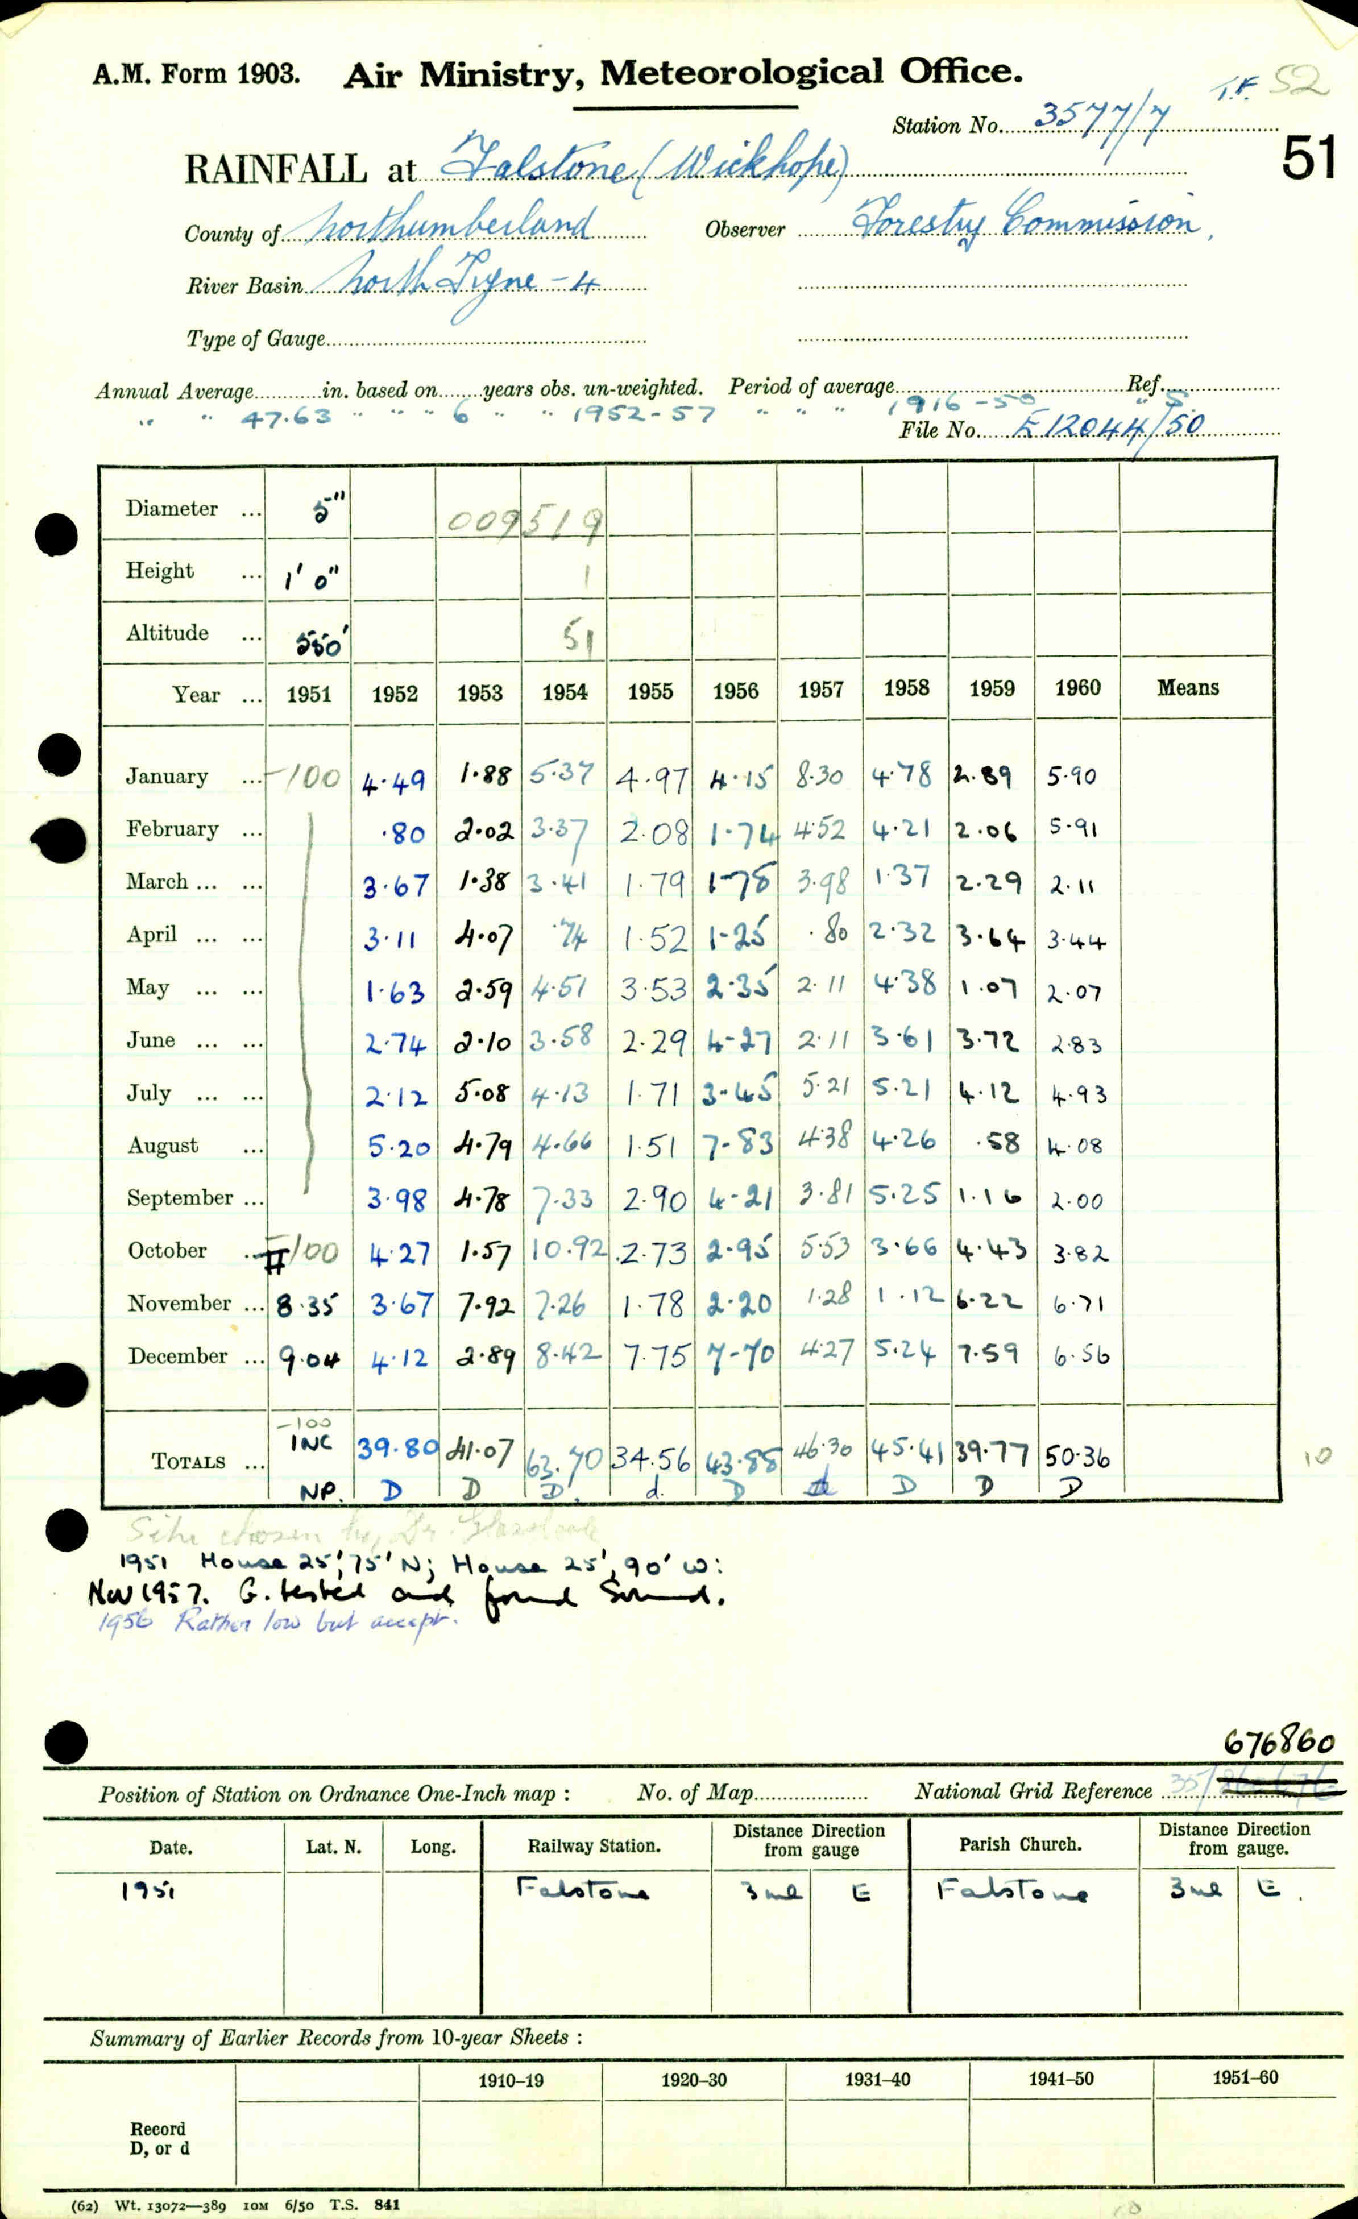 A.M. Form 1903. Air Ministry, Meteorological Office.
T.F. 52
Station No. 3577/7
51
RAINFALL at Falstone (Wickhope)
County of Northumberland Observer Forestry Commission,
River Basin North Tyne - 4
Type of Gauge
Annual Average in. based on years obs. un-weighted. Period of average Ref.
" " 47.63 " " " 6 " " 1952-57 " " " 1916-50 " S.
File No. E 12044/50
Diameter ... 5" 009519
Height ... 1' 0" 1
Altitude ... 550' 51
Year ... 1951 1952 1953 1954 1955 1956 1957 1958 1959 1960 Means
January ... -100 4.49 1.88 5.37 4.97 4.15 8.30 4.78 2.89 5.90
February ... .80 2.02 3.37 2.08 1.74 4.52 4.21 2.06 5.91
March ... ... 3.67 1.38 3.41 1.79 1.78 3.98 1.37 2.29 2.11
April ... ... 3.11 4.07 .74 1.52 1.25 .80 2.32 3.64 3.44
May ... ... 1.63 2.59 4.51 3.53 2.35 2.11 4.38 1.07 2.07
June ... ... 2.74 2.10 3.58 2.29 4.27 2.11 3.61 3.72 2.83
July ... ... 2.12 5.08 4.13 1.71 3.45 5.21 5.21 4.12 4.93
August ... 5.20 4.79 4.66 1.51 7.83 4.38 4.26 .58 4.08
September ... 3.98 4.78 7.33 2.90 4.21 3.81 5.25 1.16 2.00
October ... -100 4.27 1.57 10.92 2.73 2.95 5.53 3.66 4.43 3.82
November ... 8.35 3.67 7.92 7.26 1.78 2.20 1.28 1.12 6.22 6.71
December ... 9.04 4.12 2.89 8.42 7.75 7.70 4.27 5.24 7.59 6.56
-100
TOTALS ... INC 39.80 41.07 63.70 34.56 43.88 46.30 45.41 39.77 50.36
10
NP. D D D. d. D d D D D
Site chosen by Dr. Glasspoole
1951 House 25', 75' N; House 25', 90' W:
Nov 1957. G. tested and found Sound.
1956 Rather low but accept.
676860
Position of Station on Ordnance One-Inch map : No. of Map National Grid Reference 35/
Date. Lat. N. Long. Railway Station. Distance Direction from gauge Parish Church. Distance Direction from gauge.
1951 Falstone 3 ml E Falstone 3 ml E.
Summary of Earlier Records from 10-year Sheets :
1910–19 1920–30 1931–40 1941–50 1951–60
Record
D, or d
(62) Wt. 13072—389 10M 6/50 T.S. 841